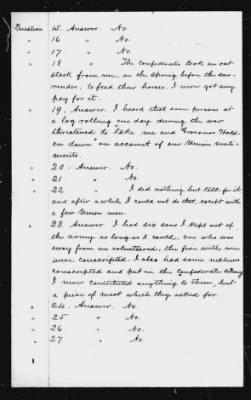 Question 15. Answer. No.
" 16 " No.
" 17 " No.
" 18 " The Confederates took an oat
stack from me, in the spring before the sur-
render, to feed their horses. I never got any
pay for it.
" 19. Answer. I heard that some persons at
a log rolling one day during the war
threatened to take me and Governor Hold-
en down on account of our Union senti-
ments.
" 20. Answer. No.
" 21 " No.
" 22 " I did nothing but talk for it
and after a while I could not do that, except with
a few Union men.
" 23. Answer. I had six sons I kept out of
the army as long as I could, one who was
away from me volunteered, the five with me
were conscripted. I also had some nephews
conscripted and put in the Confederate army
I never contributed anything to them, but
a piece of meat which they asked for.
" 24. Answer. No.
" 25 " No.
" 26 " No.
" 27 " No.